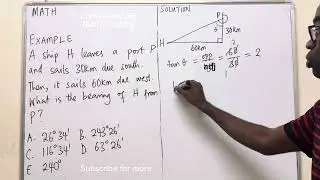 MATH
EXAMPLE
A ship H leaves a port P
and sails 30km due south.
Then, it sails 60km due west.
What is the bearing of H from
P?
A. 26°34' B. 243°26'
C. 116°34' D. 63°26'
E 240°
Subscribe for more
SOLUTION
P
θ
30km
H
60km
tan θ = opp/adj = 60/30 = 2
2
1